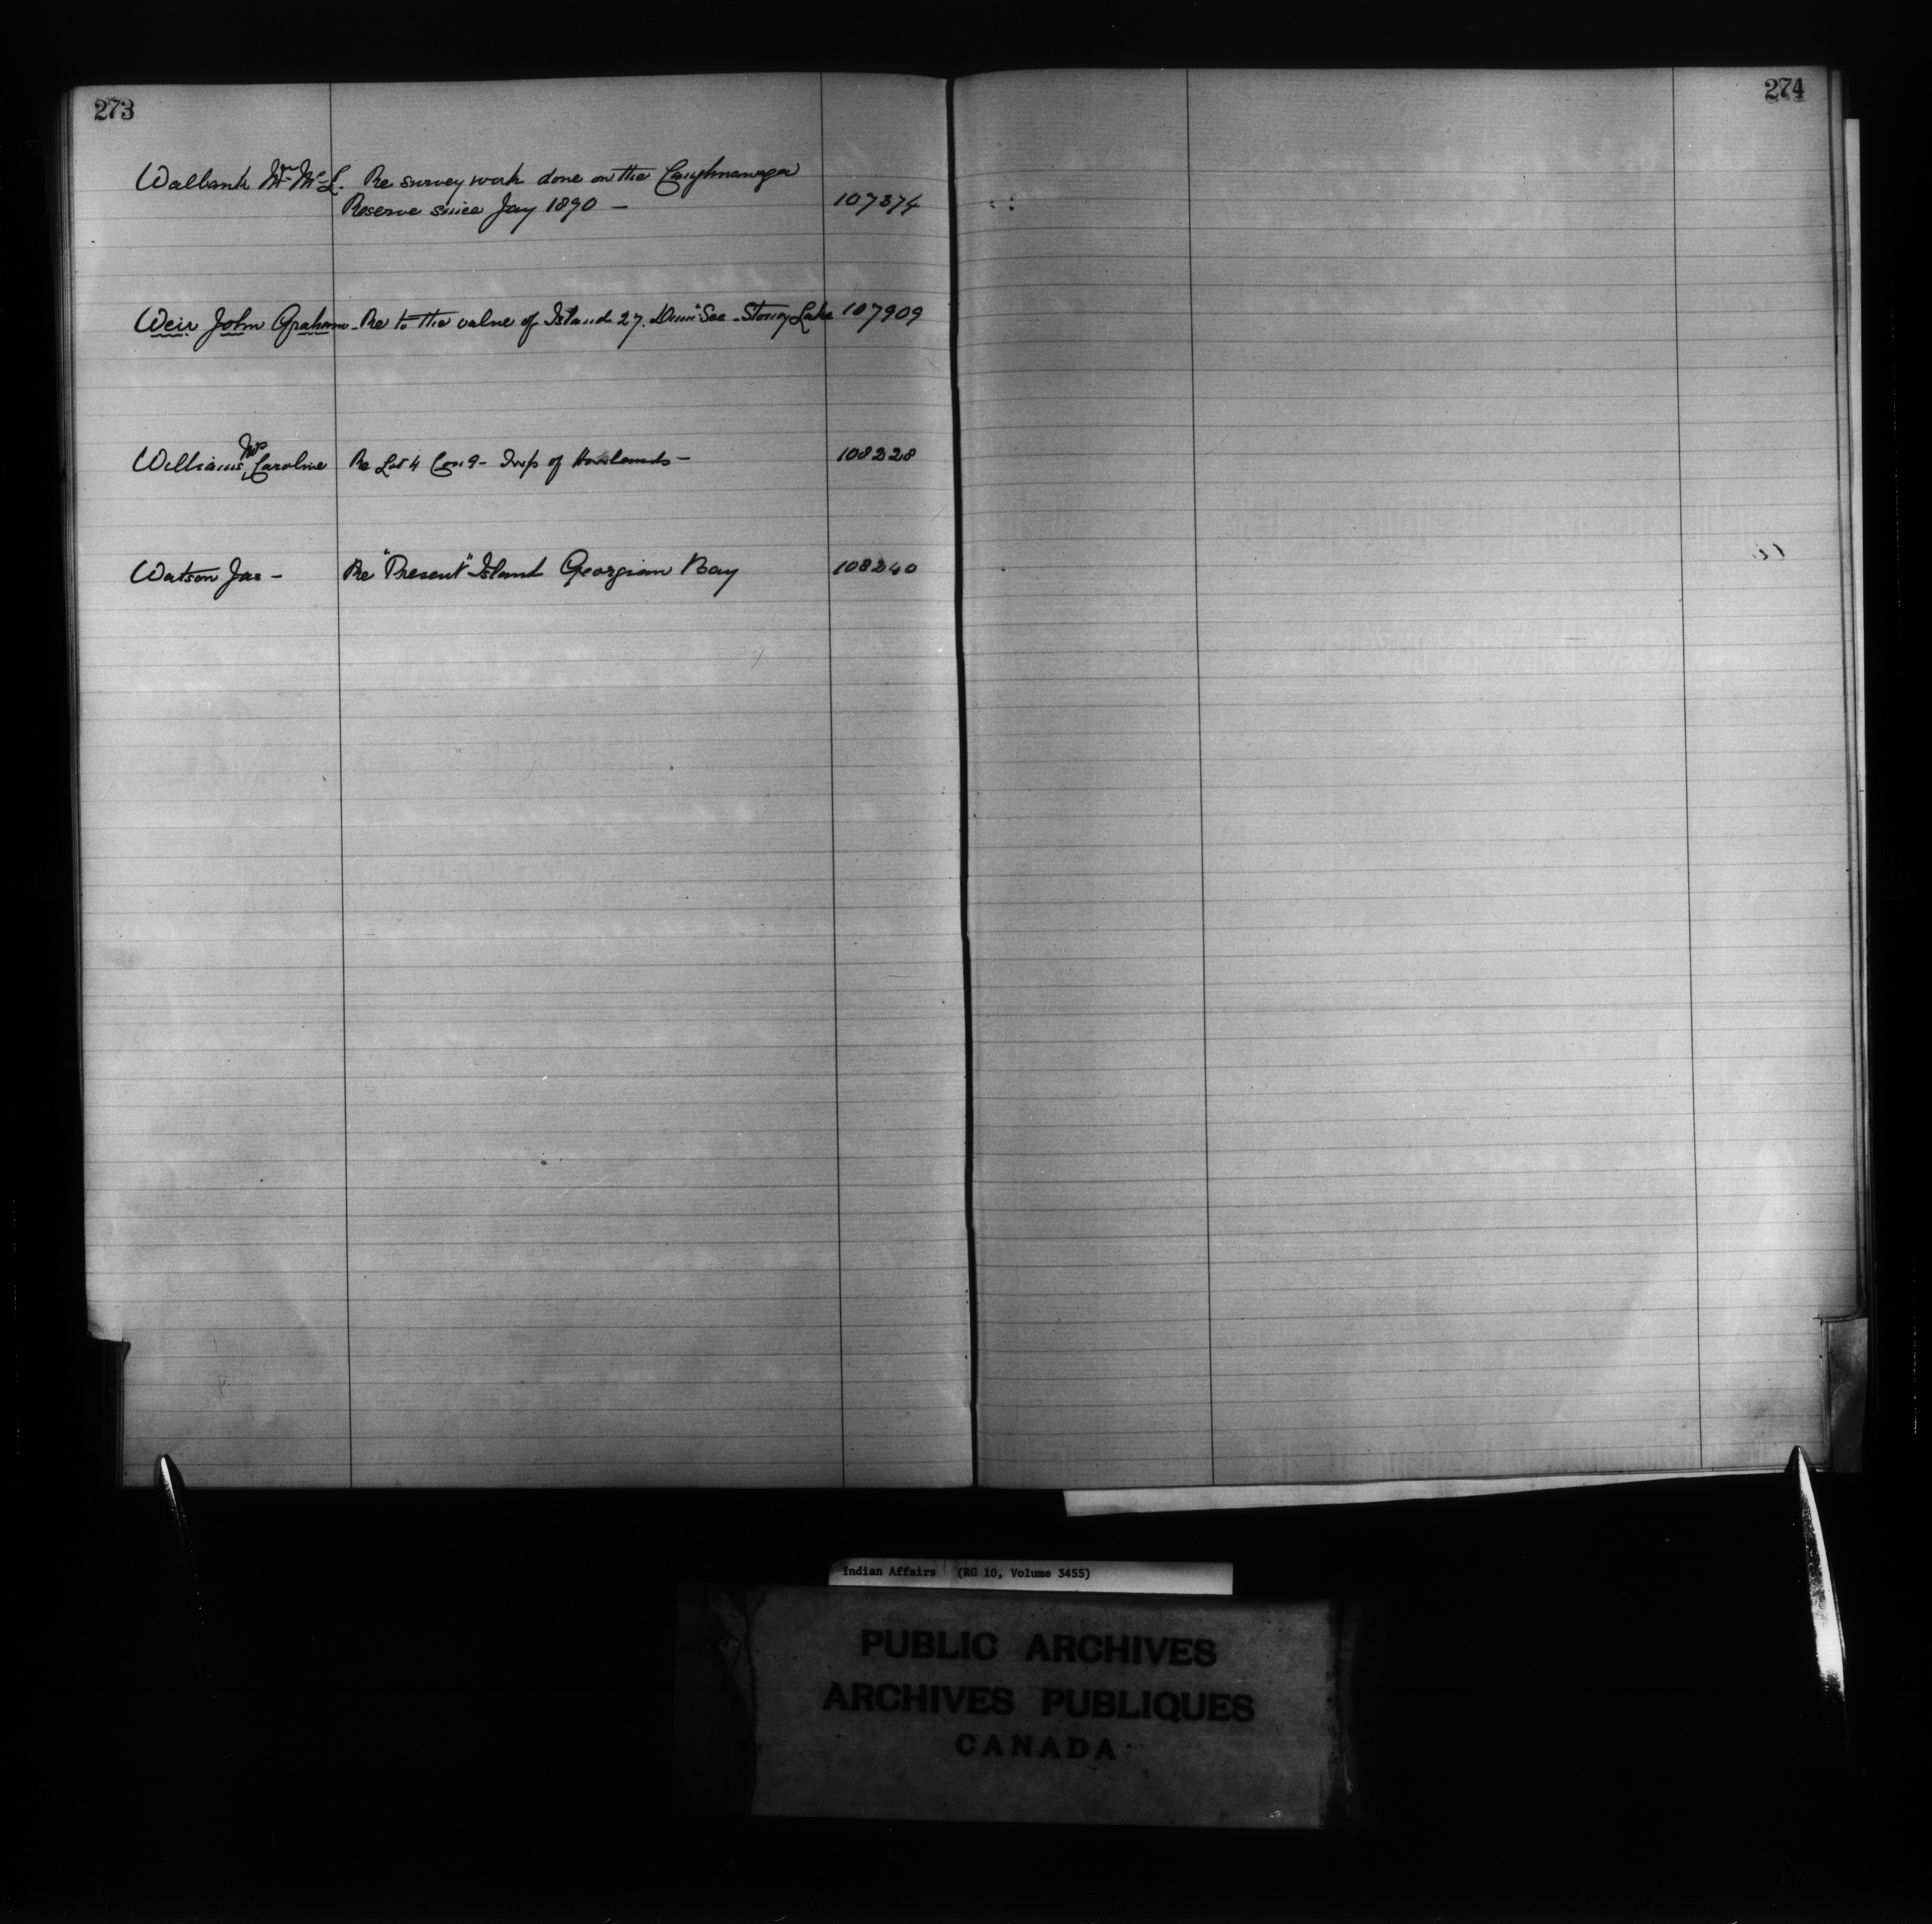 273
274
Walbank Wm McL. Re survey work done on the Caughnawaga
Reserve since Jay 1890 — 107374
Weir John Graham - Re to the value of Island 27. Dum See - Stoney Lake 107909
Mrs
Williams, Caroline Re Lot 4 Con 9 - Twp of Howlands - 108228
Watson Jas - Re "Present" Island Georgian Bay 108240
Indian Affairs (RG 10, Volume 3455)
PUBLIC ARCHIVES
ARCHIVES PUBLIQUES
CANADA